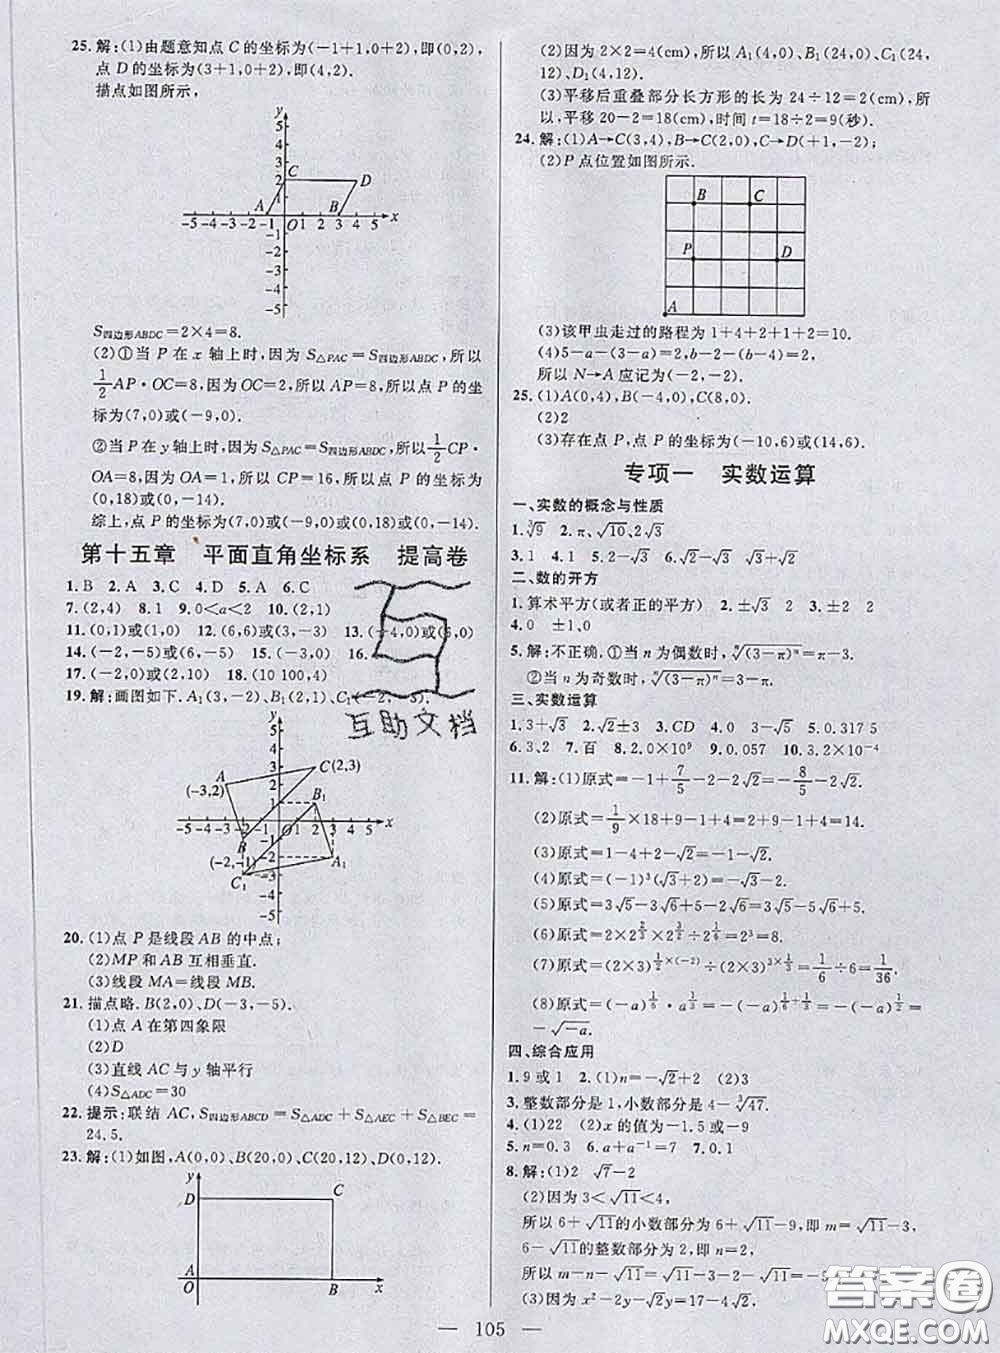 25. 解:(1)由题意知点 C 的坐标为(-1+1,0+2),即(0,2),
点 D 的坐标为(3+1,0+2),即(4,2).
描点如图所示,
y
5
4
3
2 C D
1
A B
-5 -4 -3 -2 -1 O 1 2 3 4 5 x
-1
-2
-3
-4
-5
S四边形ABDC=2×4=8.
(2)①当 P 在 x 轴上时,因为 S△PAC=S四边形ABDC,所以
1/2 AP·OC=8,因为 OC=2,所以 AP=8,所以点 P 的坐
标为(7,0)或(-9,0).
②当 P 在 y 轴上时,因为 S△PAC=S四边形ABDC,所以 1/2 CP·
OA=8,因为 OA=1,所以 CP=16,所以点 P 的坐标为
(0,18)或(0,-14).
综上,点 P 的坐标为(7,0)或(-9,0)或(0,18)或(0,-14).
第十五章 平面直角坐标系 提高卷
1. B 2. A 3. C 4. D 5. A 6. C
7. (2,4) 8. 1 9. 0<a<2 10. (2,1)
11. (0,1)或(1,0) 12. (6,6)或(3,-3) 13.
14. (-2,-5)或(6,-5) 15. (-3,0) 16.
17. (-2,0)或(2,10) 18. (10 100,4)
19. 解:画图如下. A₁(3,-2),B₁(2,1),C₁(-2,-3).
互助文档
y
5
4
3 C(2,3)
A 2
(-3,2) 1 B₁
-5 -4 -3 -2 O 1 2 3 4 5 x
B -1
(-2,-1) -2 A₁
C₁ -3
-4
-5
20. (1)点 P 是线段 AB 的中点;
(2)MP 和 AB 互相垂直.
(3)线段 MA=线段 MB.
21. 描点略. B(2,0),D(-3,-5).
(1)点 A 在第四象限
(2)D
(3)直线 AC 与 y 轴平行
(4)S△ADC=30
22. 提示:联结 AC,S四边形ABCD=S△ADC+S△AEC+S△BEC=
24.5.
23. 解:(1)如图,A(0,0)、B(20,0)、C(20,12)、D(0,12).
y
D C
A
O B x
(2)因为 2×2=4(cm),所以 A₁(4,0)、B₁(24,0)、C₁(24,
12)、D₁(4,12).
(3)平移后重叠部分长方形的长为 24÷12=2(cm),所
以,平移 20-2=18(cm),时间 t=18÷2=9(秒).
24. 解:(1)A→C(3,4),B→C(2,0),C→D(+1,-2);
(2)P 点位置如图所示.
B C
P D
A
(3)该甲虫走过的路程为 1+4+2+1+2=10.
(4)5-a-(3-a)=2,b-2-(b-4)=2,
所以 N→A 应记为(-2,-2).
25. (1)A(0,4),B(-4,0),C(8,0).
(2)2
(3)存在点 P,点 P 的坐标为(-10,6)或(14,6).
专项一 实数运算
一、实数的概念与性质
1. ∛9 2. π、√10、2√3
3. 1 4. 1 5. 2-√3 √3+√2
二、数的开方
1. 算术平方(或者正的平方) 2. ±√3 2 3. ±2
4. 0 ±1、0
5. 解:不正确.①当 n 为偶数时,ⁿ√(3-π)ⁿ=π-3.
②当 n 为奇数时,ⁿ√(3-π)ⁿ=3-π.
三、实数运算
1. 3+√3 2. √2±3 3. CD 4. 0 3-√5 5. 0.317 5
6. 3、2 7. 百 8. 2.0×10⁹ 9. 0、0 10. 3.2×10⁻⁴
11. 解:(1)原式=-1+7/5-2-2√2=-8/5-2√2.
(2)原式=1/9×18+9-1+4=2+9-1+4=14.
(3)原式=1-4+2-√2=-1-√2.
(4)原式=(-1)³(√3+2)=-√3-2.
(5)原式=3√5-3√5+2√5-6√5+5=2√5-6√5+5.
(6)原式=2×2^(2/3)×2^(3/2)÷2^(1/6)=2³=8.
(7)原式=(2×3)^(1/2×(-2))÷(2×3)^(3×1/3)=1/6÷6=1/36.
(8)原式=(-a)^(1/6)·a^(1/3)=-(-a)^(1/6+1/3)=-(-a)^(1/2)=
-√-a.
四、综合应用
1. 9 或 1 2. (1)n=-√2+2 (2)3
3. 整数部分是 1,小数部分是 4-∛47.
4. (1)22 (2)x 的值为-1.5 或-9
5. n=0.3 6. a+a⁻¹=7 7. 0.1
8. 解:(1)2 √7-2
(2)因为 3<√11<4,
所以 6+√11的小数部分为 6+√11-9,即 m=√11-3,
6-√11的整数部分为 2,即 n=2,
所以 m-n-√11=√11-3-2-√11=-5
(3)因为 x²-2y-√2y=17-4√2,
答案圈
MXQE.COM
— 105 —